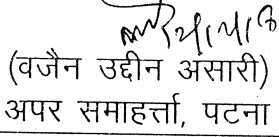 (वजैन उद्दीन अंसारी)
अपर समाहर्त्ता, पटना